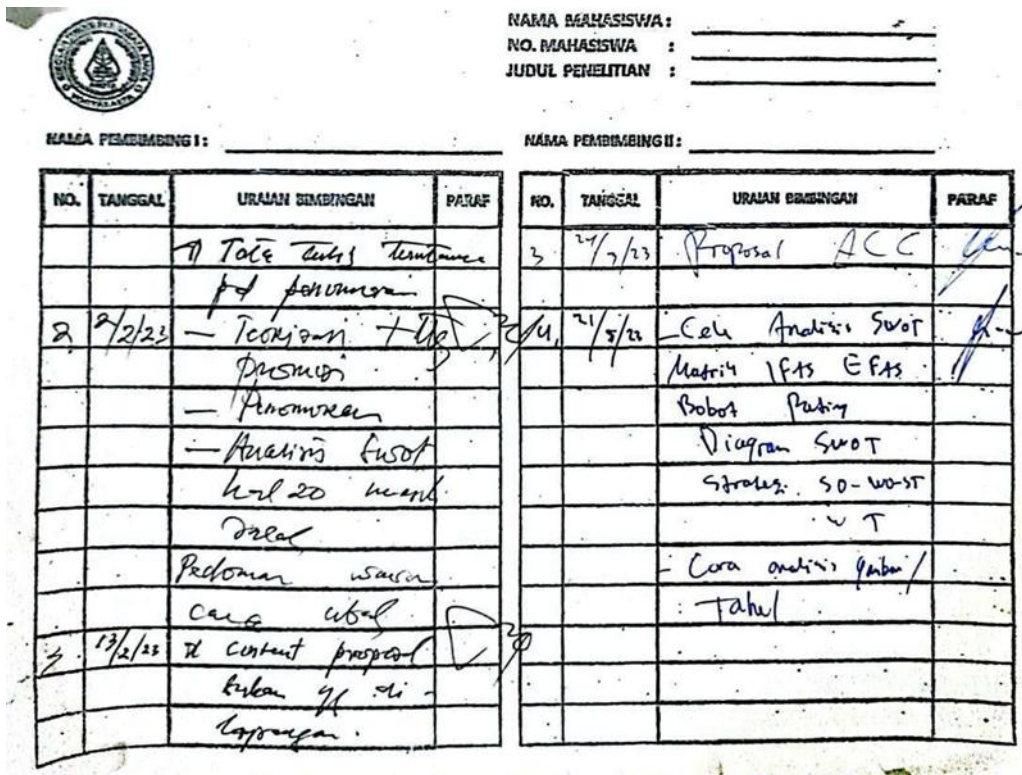 NAMA MAHASISWA :
NO. MAHASISWA :
JUDUL PENELITIAN :
NAMA PEMBIMBING I :
NAMA PEMBIMBING II :
NO. TANGGAL URAIAN BIMBINGAN PARAF
Tata tulis terutama
pd penomoran
2 2/2/23 – Teorisasi +
promosi
– Penomoran
– Analisis Swot
hal 20
Pedoman wawan
cara
13/2/23 content proposal
bukan yg di -
lapangan.
NO. TANGGAL URAIAN BIMBINGAN PARAF
3 Proposal ACC
4. - Cek Analisis SWOT
Matrik IFAS EFAS
Bobot Rating
Diagram SWOT
Strategi SO-WO-ST
WT
- Cara analisis
Tabel